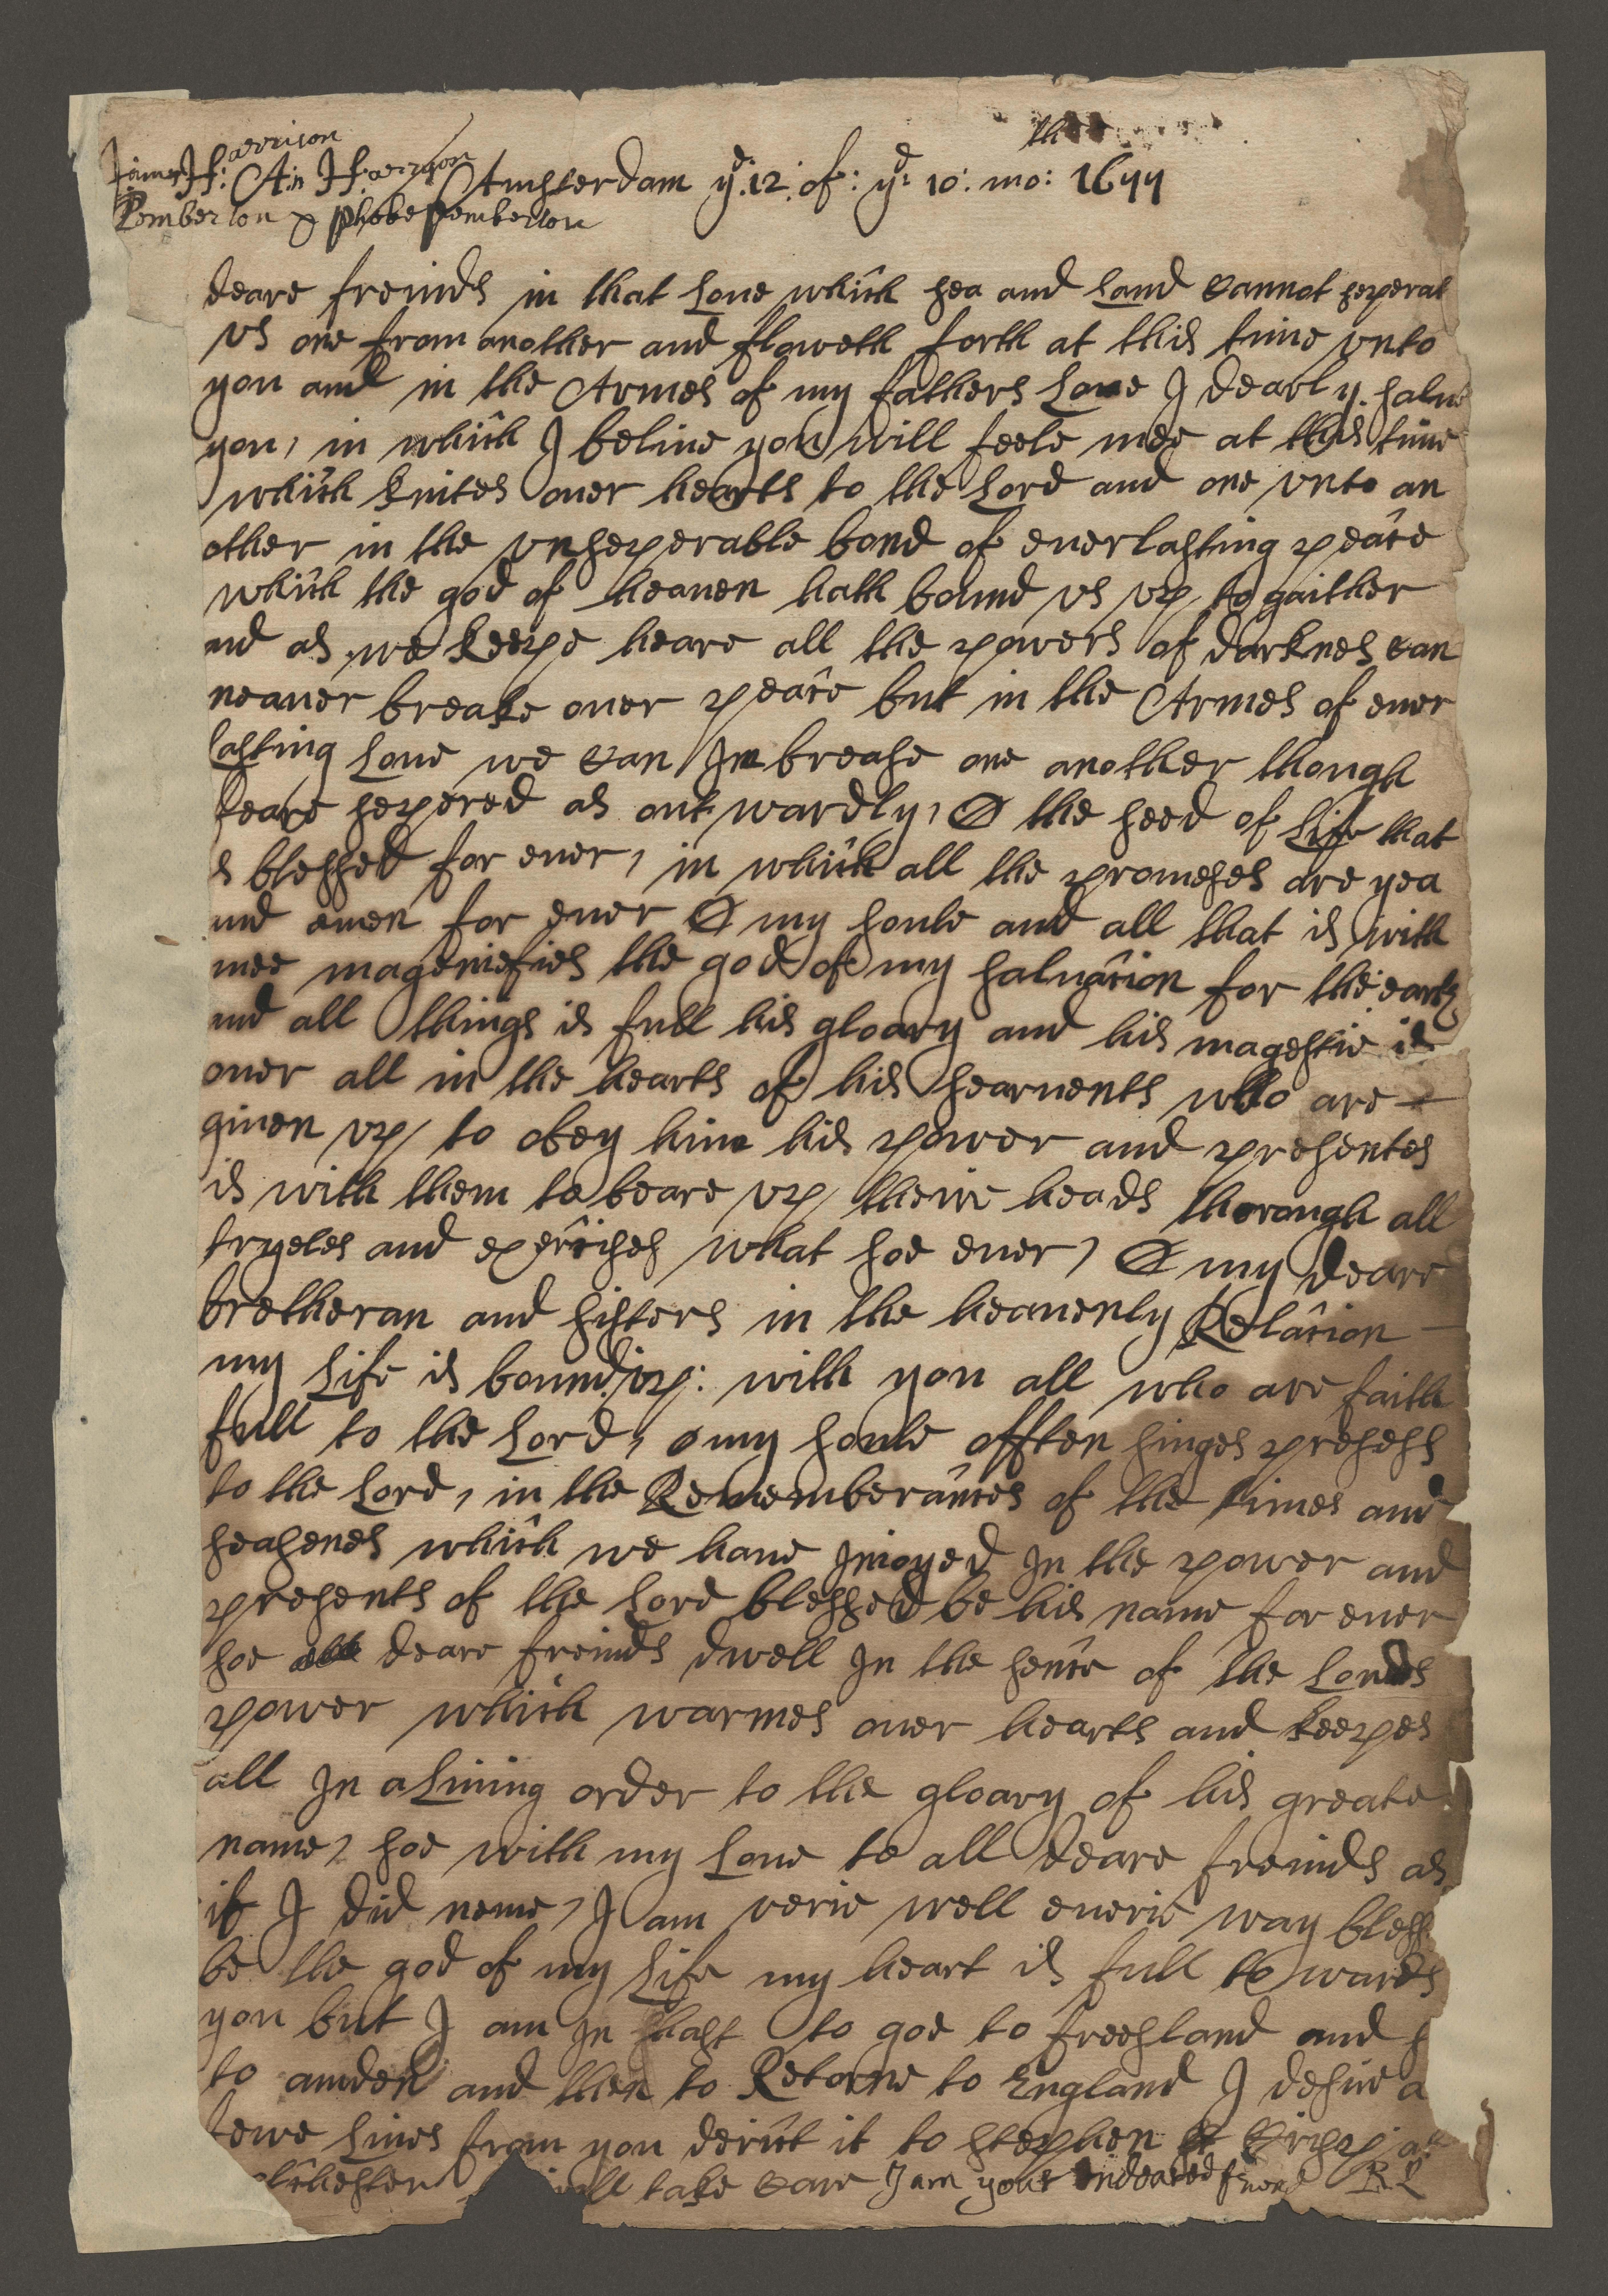 the
James H: arrison
An H: arryson Amsterdam yd: 12: of: yd: 10: mo: 1677
Pemberton & Phebe pemberton
deare freinds in that Loue which sea and Land cannot seperat
vs one from another and floweth forth at this time vnto
you and in the Armes of my fathers Loue I dearly salue
you, in which I beliue you will feele mee at this time
which knites ouer hearts to the Lord and one vnto an
other in the vnseperable bond of euerlasting peace
which the god of heauen hath bound vs vp to gaither
nd as we keepe heare all the powers of darknes can
neauer breake ouer peace but in the Armes of euer
lasting Loue we can Imbrease one another though
feare sepered as outwardly, O the seed of Life that
s blessed for euer, in which all the promeses are yea
nd amen for euer O my soule and all that is with
mee mageniefies the god of my saluacion for the earth
nd all things is full his gloary and his magestie is
ouer all in the hearts of his searuents who are
giuen vp to obey him his power and presentes
is with them to beare vp theire heads thorough all
tryeles and exercises what soe euer, O my deare
bretheran and sisters in the heauenly Relacion
my Life is bound vp: with you all who are faith
full to the Lord, o my soule offten singes preses
to the Lord, in the Rememberances of the times and
seasenes which we haue Inioyed In the power and
presents of the Lord blessed be his name for euer
soe deare freinds dwell In the sence of the Lords
power which warmes ouer hearts and keepes
all In a Liuing order to the gloary of his greate
name, soe with my Loue to all deare freinds as
if I did neme, I am verie well euerie way bless
be the god of my Life my heart is full to wards
you but I am In hast to goe to freesland and s
to amden and then to Retorne to England I desire a
fewe Lines from you derict it to stephen Crisp at
olchester will take care I am your Indeared frend R L